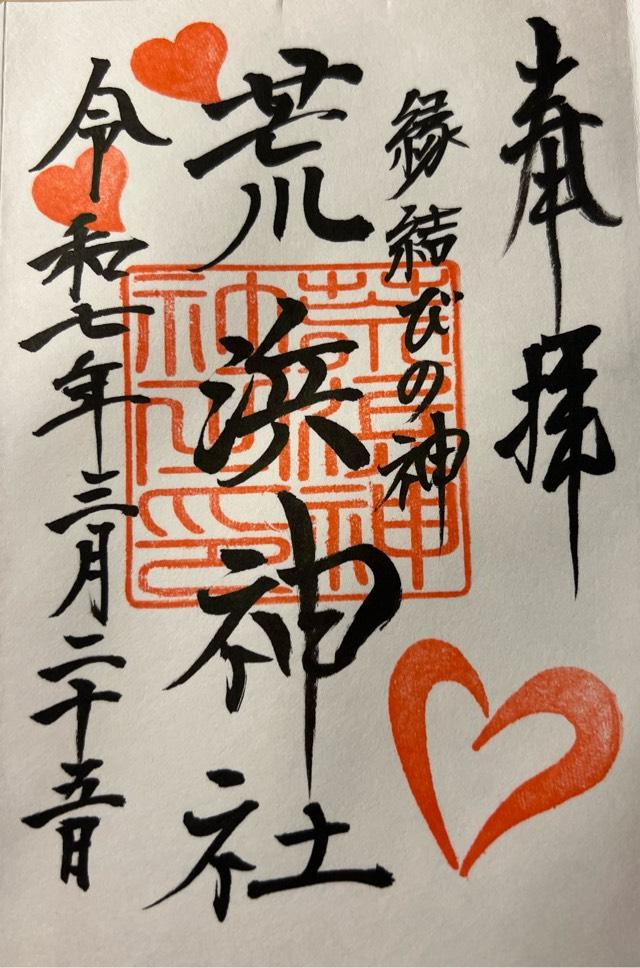 奉拝
縁結びの神
荒浜神社
令和七年三月二十五日